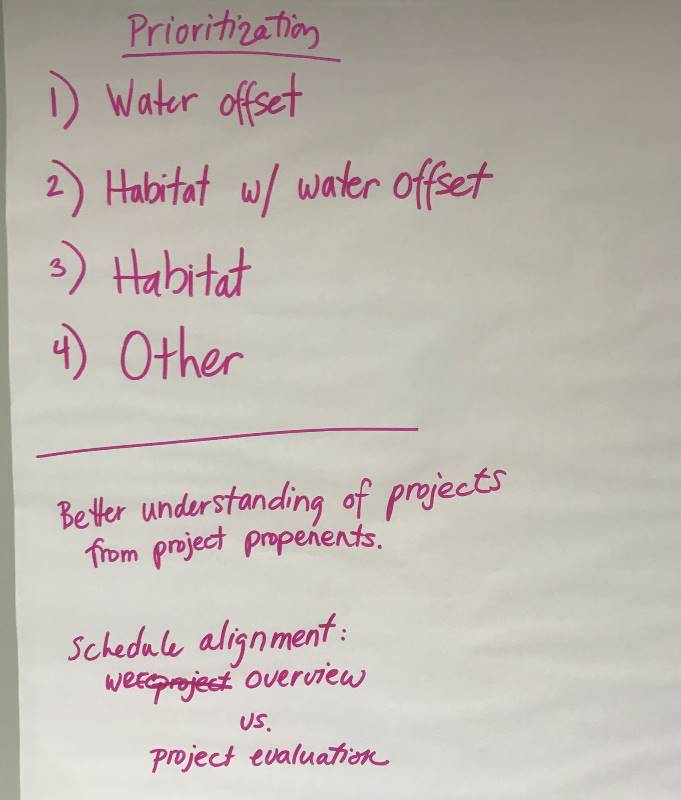 Prioritization
1) Water offset
2) Habitat w/ water offset
3) Habitat
4) Other
Better understanding of projects
from project propenents.
Schedule alignment:
project overview
vs.
project evaluation